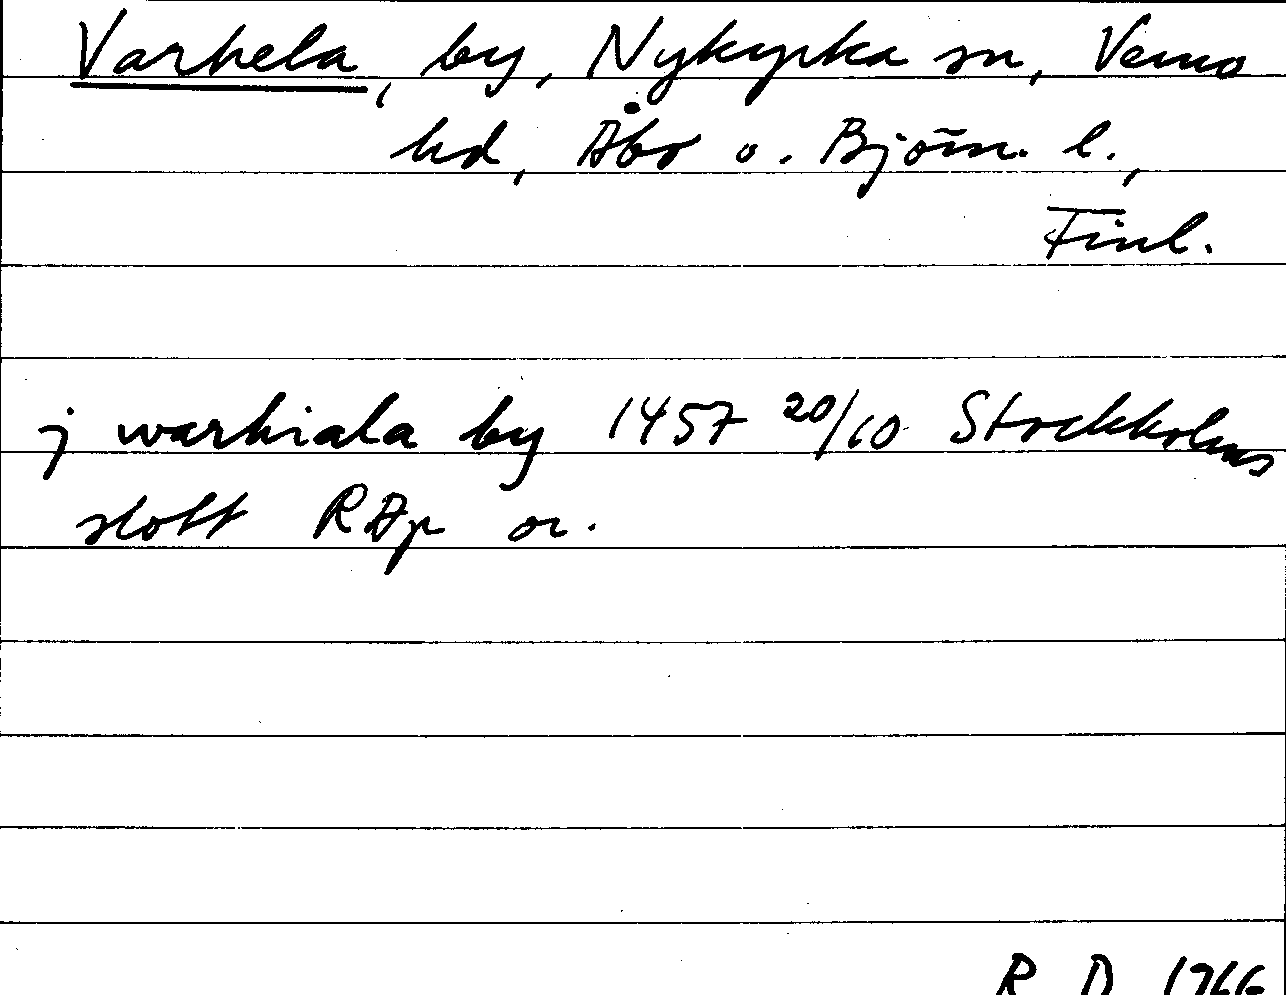 Varhela, by, Nykyrka sn, Vemo
hd, Åbo o. Björn. l.,
Finl.
j warhiala by 1457 20/10 Stockholms
slott RAp or.
R D 1966